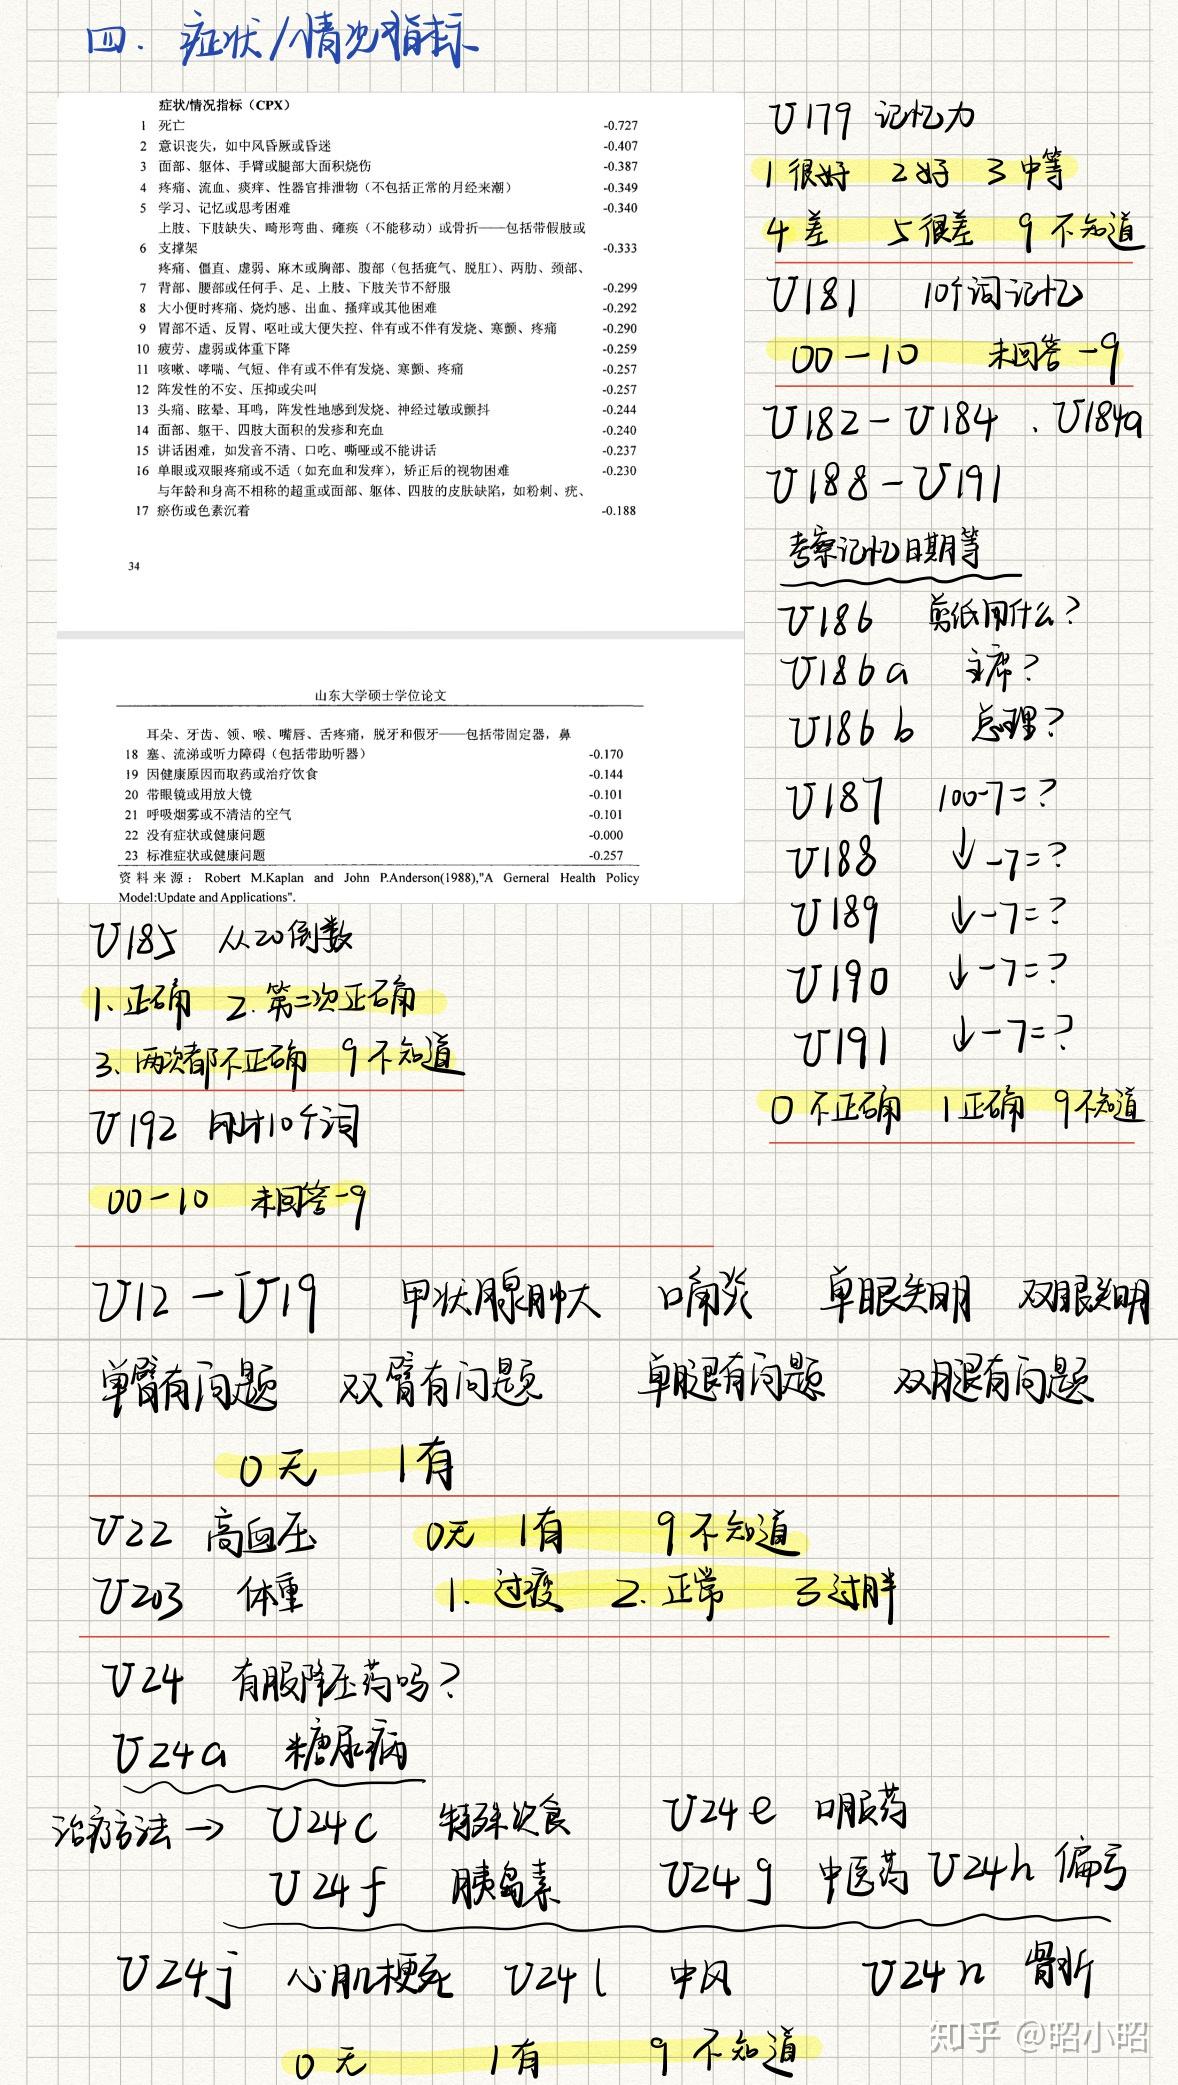 四. 症状/情况指标
症状/情况指标（CPX）
1 死亡 -0.727
2 意识丧失，如中风昏厥或昏迷 -0.407
3 面部、躯体、手臂或腿部大面积烧伤 -0.387
4 疼痛、流血、瘙痒、性器官排泄物（不包括正常的月经来潮） -0.349
5 学习、记忆或思考困难 -0.340
上肢、下肢缺失、畸形弯曲、瘫痪（不能移动）或骨折——包括带假肢或
6 支撑架 -0.333
疼痛、僵直、虚弱、麻木或胸部、腹部（包括疝气、脱肛）、两肋、颈部、
7 背部、腰部或任何手、足、上肢、下肢关节不舒服 -0.299
8 大小便时疼痛、烧灼感、出血、搔痒或其他困难 -0.292
9 胃部不适、反胃、呕吐或大便失控、伴有或不伴有发烧、寒颤、疼痛 -0.290
10 疲劳、虚弱或体重下降 -0.259
11 咳嗽、哮喘、气短、伴有或不伴有发烧、寒颤、疼痛 -0.257
12 阵发性的不安、压抑或尖叫 -0.257
13 头痛、眩晕、耳鸣，阵发性地感到发烧、神经过敏或颤抖 -0.244
14 面部、躯干、四肢大面积的发疹和充血 -0.240
15 讲话困难，如发音不清、口吃、嘶哑或不能讲话 -0.237
16 单眼或双眼疼痛或不适（如充血和发痒），矫正后的视物困难 -0.230
与年龄和身高不相称的超重或面部、躯体、四肢的皮肤缺陷，如粉刺、疣、
17 瘀伤或色素沉着 -0.188
34
山东大学硕士学位论文
耳朵、牙齿、颌、喉、嘴唇、舌疼痛，脱牙和假牙——包括带固定器，鼻
18 塞、流涕或听力障碍（包括带助听器） -0.170
19 因健康原因而取药或治疗饮食 -0.144
20 带眼镜或用放大镜 -0.101
21 呼吸烟雾或不清洁的空气 -0.101
22 没有症状或健康问题 -0.000
23 标准症状或健康问题 -0.257
资料来源：Robert M.Kaplan and John P.Anderson(1988),"A Gerneral Health Policy
Model:Update and Applications".
U179 记忆力
1 很好 2 好 3 中等
4 差 5 很差 9 不知道
U181 10个词记忆
00-10 未回答-9
U182-U184、U184a
U188-U191
考察记忆日期等
U186 剪纸用什么?
U186a 主席?
U186b 总理?
U187 100-7=?
U188 ↓-7=?
U189 ↓-7=?
U190 ↓-7=?
U191 ↓-7=?
0 不正确 1 正确 9 不知道
U185 从20倒数
1、正确 2. 第二次正确
3、两次都不正确 9 不知道
U192 刚才10个词
00-10 未回答-9
U12-U19 甲状腺肿大 口角炎 单眼失明 双眼失明
单臂有问题 双臂有问题 单腿有问题 双腿有问题
0 无 1 有
U22 高血压 0无 1有 9 不知道
U203 体重 1. 过瘦 2. 正常 3 过胖
U24 有服降压药吗?
U24a 糖尿病
治疗方法→ U24c 特殊饮食 U24e 口服药
U24f 胰岛素 U24g 中医药 U24h 偏方
U24j 心肌梗死 U24l 中风 U24n 骨折
0 无 1 有 9 不知道
知乎 @昭小昭